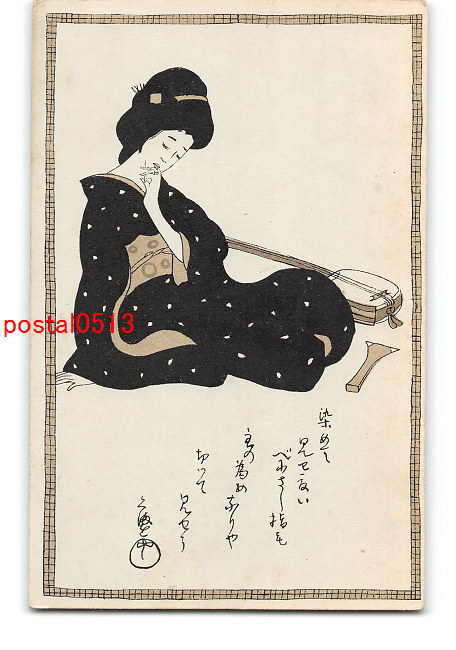 染めて
見せたい
べにさし指も
主の為めなりや
切つて
見せう
postal0513